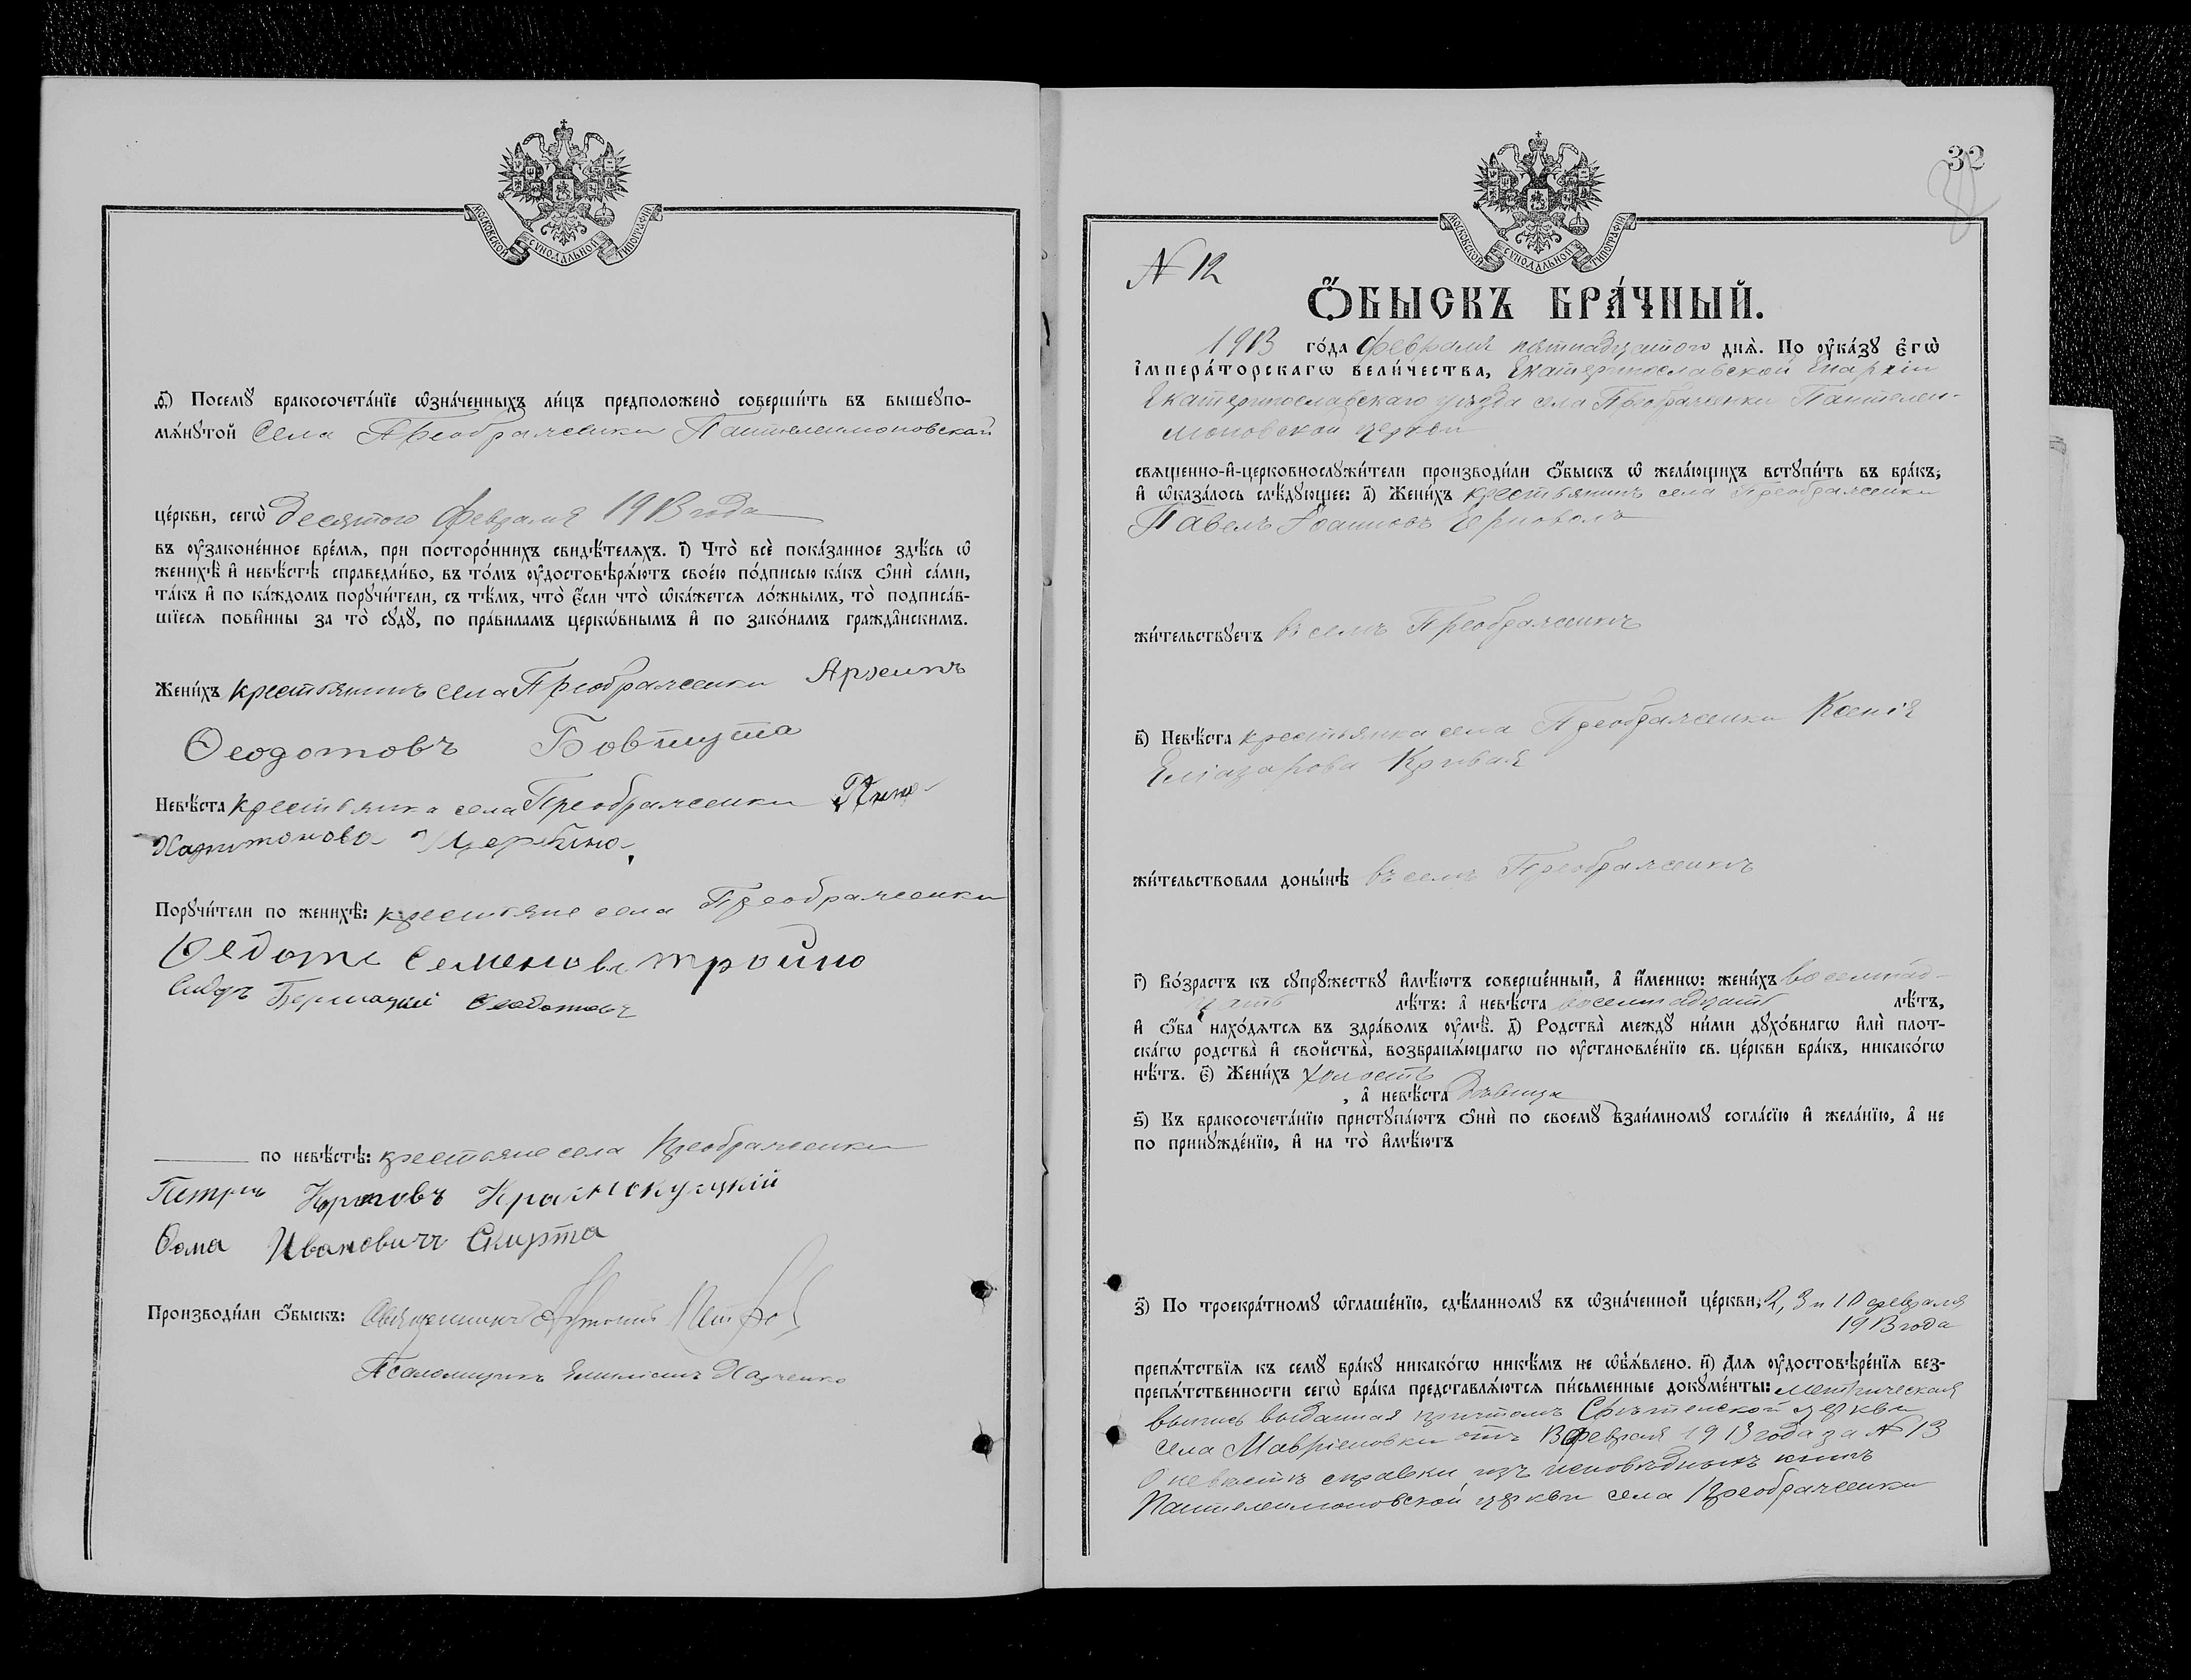 МОСКОВСКОЙ СѴНОДАЛЬНОЙ ТИПОГРАФІИ
ѳ҃) Посемꙋ̀ бракосочета́нїе ѡ҆зна́ченныхъ ли́цъ предположено̀ соверши́ть въ вышеꙋпо-
мѧ́нꙋтой села Преображенки Пантелеимоновской
це́ркви, сегѡ̀ десятого февраля 1913 года
въ ᲂу҆законе́нное вре́мѧ, при посторо́ннихъ свидѣ́телѧхъ. і҃) Что̀ всѐ пока́занное здѣ́сь ѡ҆
женихѣ̀ и҆ невѣ́стѣ справедли́во, въ то́мъ ᲂу҆достовѣрѧ́ютъ свое́ю по́дписью ка́къ ѻ҆нѝ са́ми,
та́къ и҆ по ка́ждомъ порꙋчи́тели, съ тѣ́мъ, что̀ є҆́сли что̀ ѡ҆ка́жетсѧ ло́жнымъ, то̀ подписа́в-
шїесѧ пови́нны за то̀ сꙋдꙋ̀, по пра́виламъ церкѡ́внымъ и҆ по зако́намъ гражда́нскимъ.
Жени́хъ крестьянинъ села Преображенки Архипъ
Ѳеодотовъ Бовтута
Невѣ́ста крестьянка села Преображенки
Харитонова Щербина
Порꙋчи́тели по женихѣ̀: крестьяне села Преображенки
Ѳедотъ Семеновъ
Сидръ Ѳеодотовъ
по невѣ́стѣ: крестьяне села Преображенки
Петръ Карповъ Краснокутцкій
Ѳома Ивановичъ Скирта
Производи́ли ѻ҆́быскъ: Священникъ Антоній
Псаломщикъ Харченко
32
МОСКОВСКОЙ СѴНОДАЛЬНОЙ ТИПОГРАФІИ
N 12
Ѻ҆́БЫСКЪ БРА́ЧНЫЙ.
1913 го́да февраля пятнадцатого днѧ̀. По ᲂу҆ка́зꙋ Є҆гѡ̀
І҆мпера́торскагѡ вели́чества, Екатеринославской Епархіи
Екатеринославскаго уѣзда села Преображенки Пантелеи-
моновской церкви
свѧще́нно-и҆-церковнослꙋжи́тели производи́ли ѻ҆́быскъ ѡ҆ жела́ющихъ встꙋпи́ть въ бра́къ,
и҆ ѡ҆каза́лось слѣ́дꙋющее: а҃) Жени́хъ крестьянинъ села Преображенки
Павелъ Іоанновъ Черноволъ
жи́тельствꙋетъ въ селѣ Преображенкѣ
в҃) Невѣ́ста крестьянка села Преображенки Ксенія
Еліазарова Кривая
жи́тельствовала доны́нѣ въ селѣ Преображенкѣ
г҃) Во́зрастъ къ сꙋпрꙋ́жествꙋ и҆мѣ́ютъ соверше́нный, а҆ и҆́меннѡ: жени́хъ восемнад-
цать лѣ́тъ: а҆ невѣ́ста восемнадцать лѣ́тъ,
и҆ ѻ҆́ба нахо́дѧтсѧ въ здра́вомъ ᲂу҆мѣ̀. д҃) Родства̀ междꙋ̀ ни́ми дꙋхо́внагѡ и҆лѝ плот-
ска́гѡ родства̀ и҆ свойства̀, возбранѧ́ющагѡ по ᲂу҆становле́нїю св. це́ркви бра́къ, никако́гѡ
нѣ́тъ. є҃) Жени́хъ холостъ
, а҆ невѣ́ста дѣвица
ѕ҃) Къ бракосочета́нїю пристꙋпа́ютъ ѻ҆нѝ по своемꙋ̀ взаи́мномꙋ согла́сїю и҆ жела́нїю, а҆ не
по принꙋжде́нїю, и҆ на то̀ и҆мѣ́ютъ
з҃) По троекра́тномꙋ ѡ҆глаше́нїю, сдѣ́ланномꙋ въ ѡ҆зна́ченной це́ркви, 2, 3 и 10 февраля
1913 года
препѧ́тствїѧ къ семꙋ̀ бра́кꙋ никако́гѡ никѣ́мъ не ѡ҆б̾ѧ́влено. и҃) Длѧ ᲂу҆достовѣре́нїѧ без-
препѧ́тственности сегѡ̀ бра́ка представлѧ́ютсѧ пи́сьменные докꙋме́нты: метрическая
выпись выданная причтомъ Срѣтенской церкви
села Мавріновки отъ 13 февраля 1913 года за N 13
О невѣстѣ справки изъ исповѣдныхъ книгъ
Пантелеимоновской церкви села Преображенки